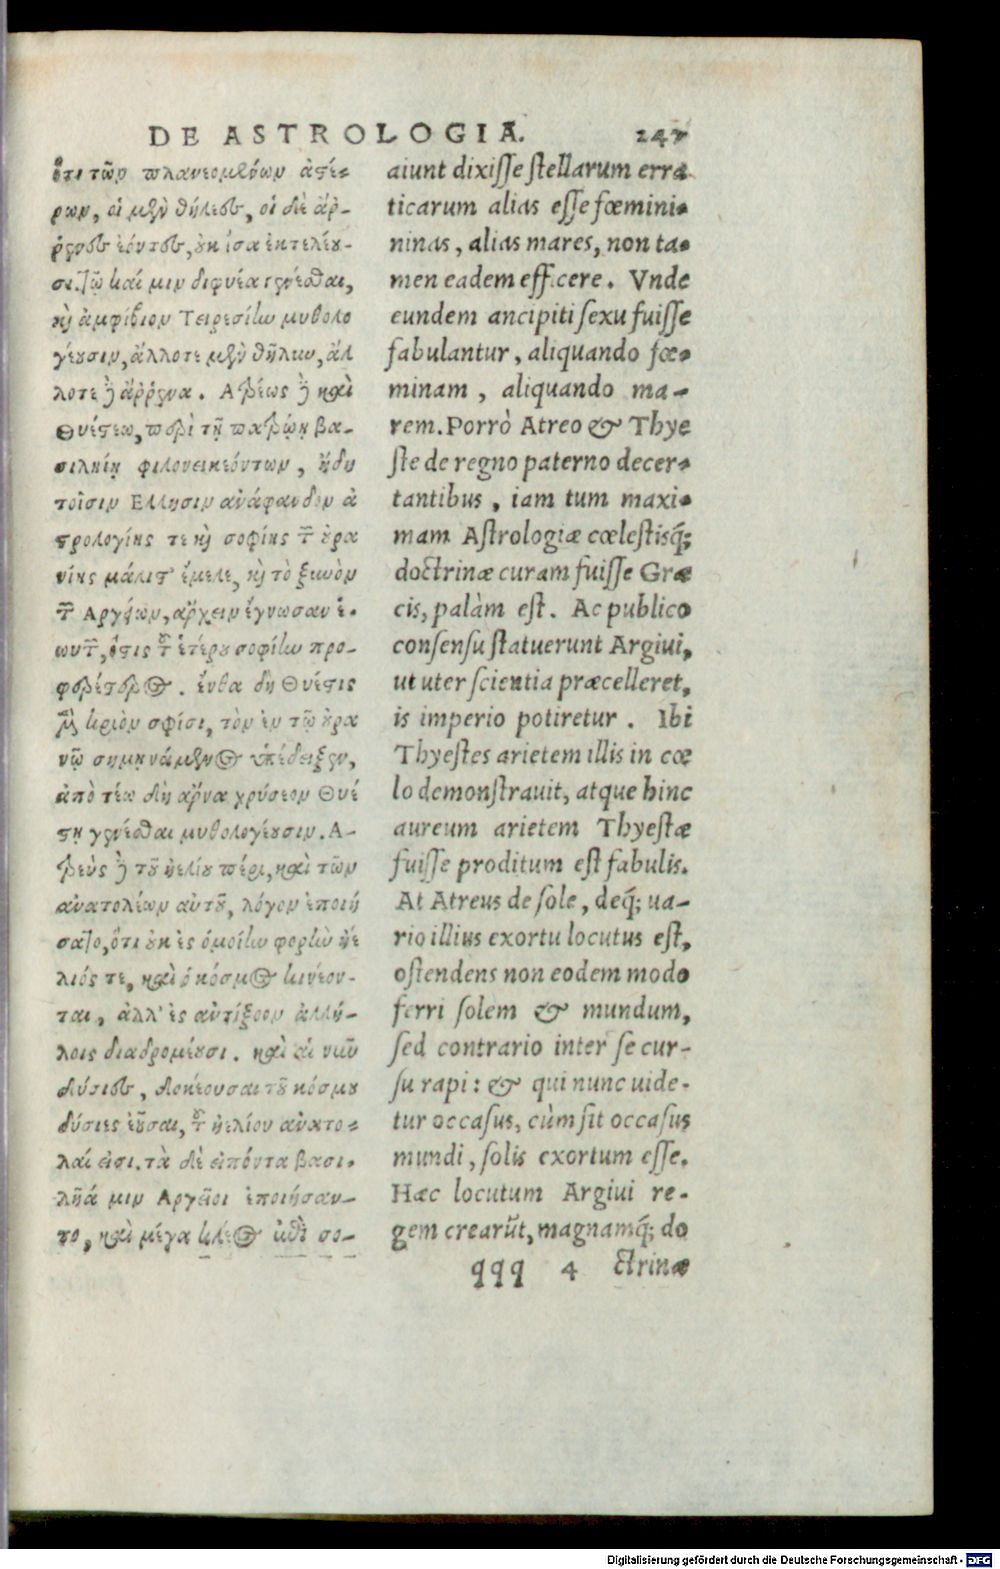 DE ASTROLOGIA. 247
ὅτι τῶν πλανεομένων ἀστέ-
ρων, οἱ μὲν θήλεες, οἱ δὲ ἄρ-
ρενες ἐόντες, οὐκ ἴσα ἐκτελέου-
σι. τῷ καί μιν διφυέα γενέσθαι,
καὶ ἀμφίβιον Τειρεσίην μυθολο
γέουσιν, ἄλλοτε μὲν θῆλυν, ἄλ
λοτε δὲ ἄρρενα. Ατρέως δὲ καὶ
Θυέστεω, περὶ τῇ πατρῴῃ βα-
σιληίῃ φιλονεικεόντων, ἤδη
τοῖσιν Ελλησιν ἀνάφανδον ἀ
στρολογίης τε καὶ σοφίης τῆς οὐρα
νίης μάλιστ' ἔμελε, καὶ τὸ ξυνὸν
τῶν Αργείων, ἄρχειν ἔγνωσαν ἑ-
ωυτῶν, ὅστις τοῦ ἑτέρου σοφίην προ-
φερέστερος. ἔνθα δὴ Θυέστης
μὲν κριὸν σφίσι, τὸν ἐν τῷ οὐρα
νῷ σημηνάμενος ὑπέδειξεν,
ἀπὸ τέω δὴ ἄρνα χρύσεον Θυέ
στῃ γενέσθαι μυθολογέουσιν. Α-
τρεὺς δὲ τοῦ ἠελίου πέρι, καὶ τῶν
ἀνατολέων αὐτοῦ, λόγον ἐποιή
σατο, ὅτι οὐκ ἐς ὁμοίην φορὴν ἠέ
λιός τε, καὶ ὁ κόσμος κινέον-
ται, ἀλλ' ἐς ἀντίξοον ἀλλή-
λοις διαδρομέουσι. καὶ αἱ νῦν
δύσιες, δοκέουσαι τοῦ κόσμου
δύσιες ἐοῦσαι, τοῦ ἠελίου ἀνατο-
λαί εἰσι. τὰ δὲ εἰπόντα βασι-
λῆά μιν Αργεῖοι ἐποιήσαν-
το, καὶ μέγα κλέος ἐπὶ σο-
aiunt dixisse stellarum erra
ticarum alias esse fœmini-
ninas, alias mares, non ta-
men eadem efficere. Vnde
eundem ancipiti sexu fuisse
fabulantur, aliquando fœ-
minam, aliquando ma-
rem. Porrò Atreo & Thye
ste de regno paterno decer-
tantibus, iam tum maxi-
mam Astrologiæ cœlestisq́;
doctrinæ curam fuisse Græ
cis, palàm est. Ac publico
consensu statuerunt Argiui,
ut uter scientia præcelleret,
is imperio potiretur. Ibi
Thyestes arietem illis in cœ
lo demonstrauit, atque hinc
aureum arietem Thyestæ
fuisse proditum est fabulis.
At Atreus de sole, deq́; ua-
rio illius exortu locutus est,
ostendens non eodem modo
ferri solem & mundum,
sed contrario inter se cur-
su rapi: & qui nunc uide-
tur occasus, cùm sit occasus
mundi, solis exortum esse.
Hæc locutum Argiui re-
gem crearũt, magnamq́; do
qqq 4 ctrinæ
Digitalisierung gefördert durch die Deutsche Forschungsgemeinschaft - DFG